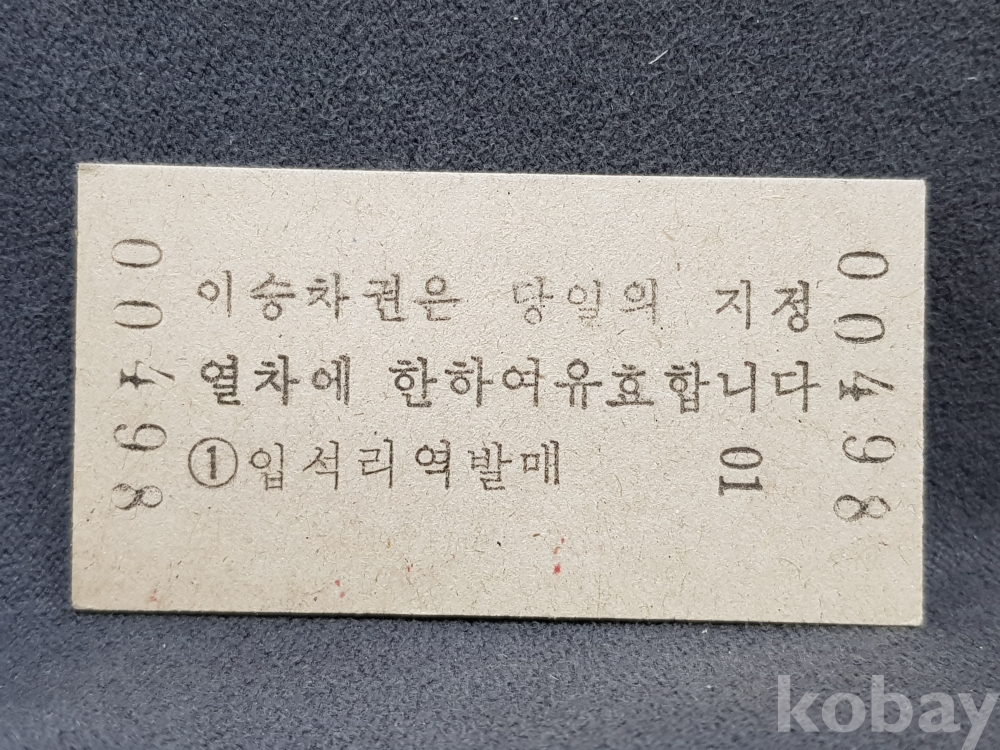 00498
이승차권은 당일의 지정
열차에 한하여유효합니다
①입석리역발매
01
00498
kobay